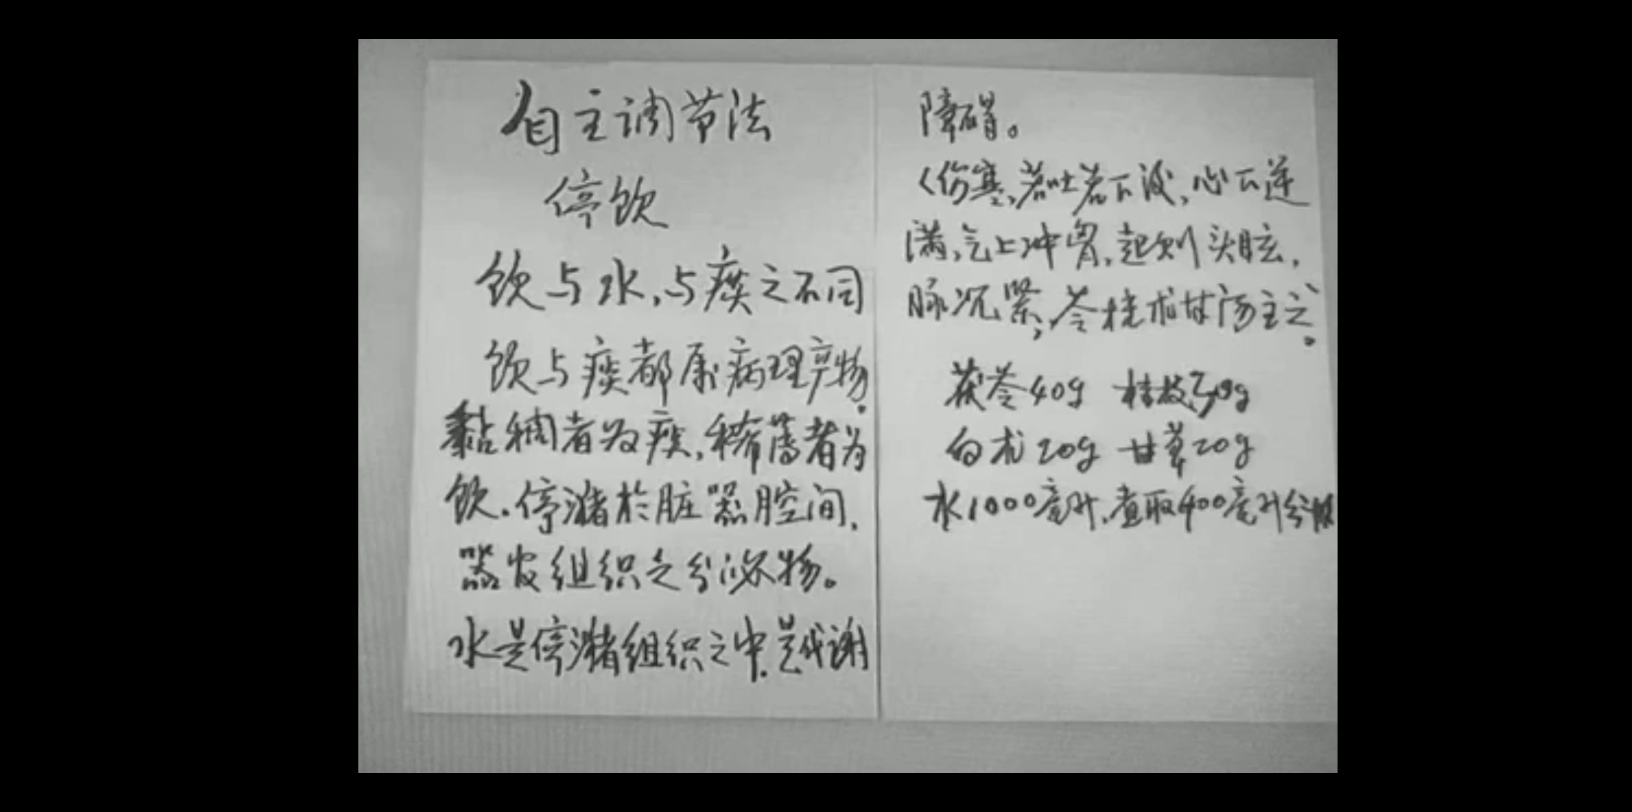 自主调节法
停饮
饮与水,与痰之不同
饮与痰都属病理产物.
黏稠者为痰,稀薄者为
饮.停潴於脏器腔间,
器皮组织之分泌物。
水是停潴组织之中,是代谢
障碍。
<伤寒,若吐若下後,心下逆
满,气上冲胸,起则头眩,
脉沉紧,苓桂术甘汤主之。
茯苓40g 桂枝30g
白术20g 甘草20g
水1000毫升,煮取400毫升分服